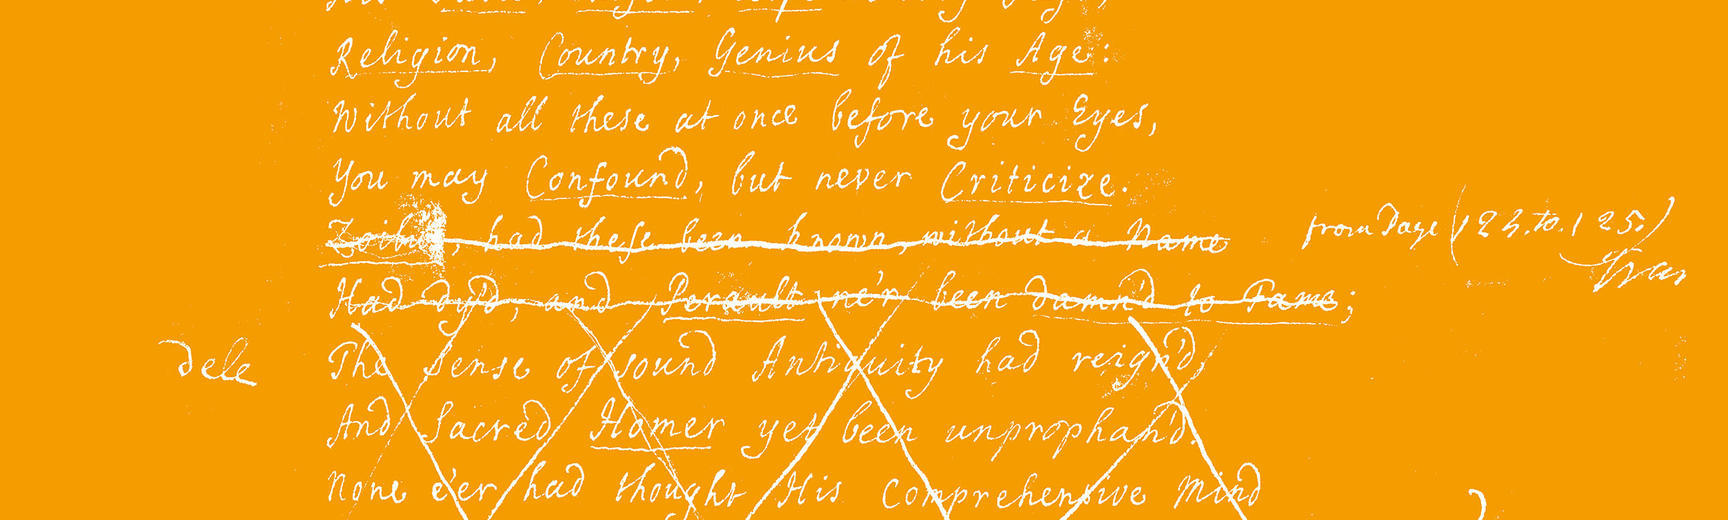 Religion, Country, Genius of his Age:
Without all these at once before your Eyes,
You may Confound, but never Criticize.
Zoilus, had these been known, without a Name
from Page (124. to. 125.)
Had dy'd, and Perault ne'r been Damn'd to Fame;
dele
The Sense of sound Antiquity had reign'd,
And Sacred Homer yet been unprophan'd.
None e'er had thought His Comprehensive Mind